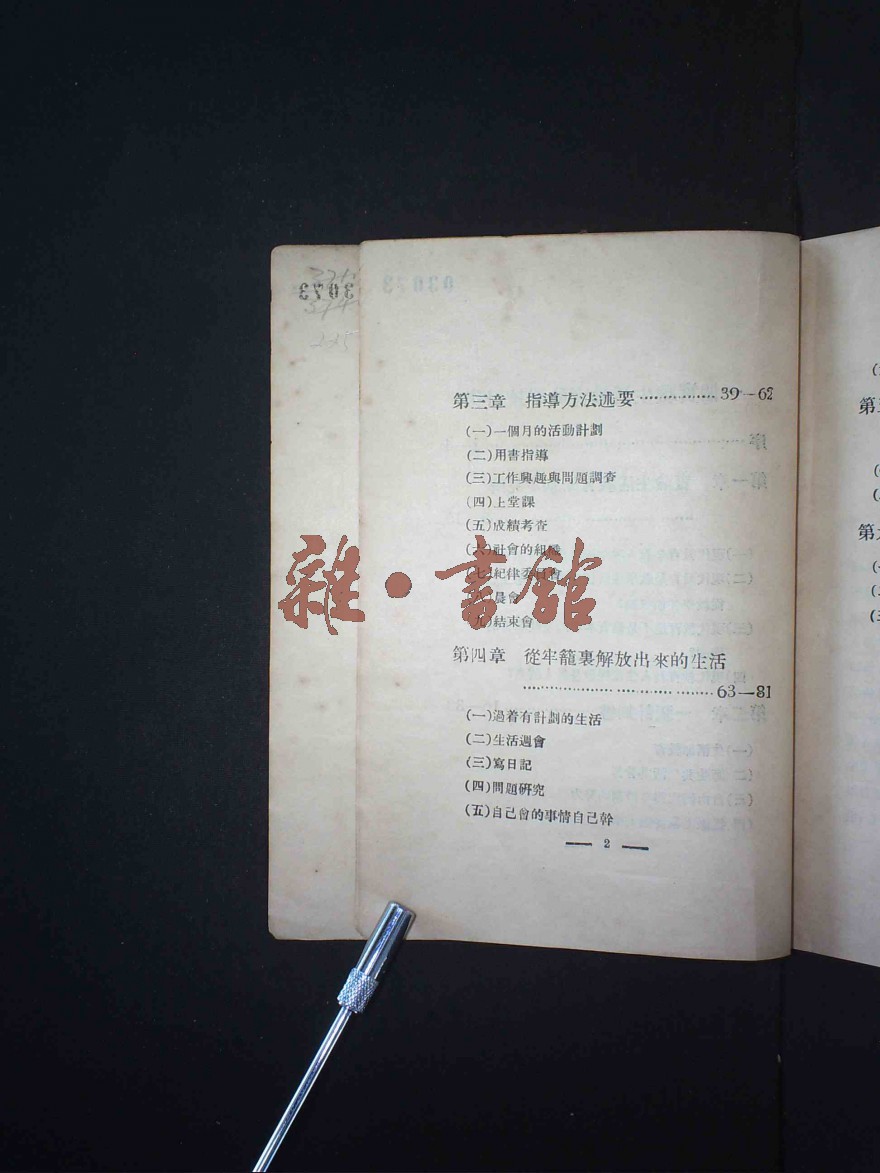 第三章 指導方法述要 ……………… 39—62
(一)一個月的活動計劃
(二)用書指導
(三)工作興趣與問題調查
(四)上堂課
(五)成績考查
(六)社會的組織
(七)紀律委員會
(八)晨會
(九)結束會
雜·書館
第四章 從牢籠裏解放出來的生活
……………………………… 63—81
(一)過着有計劃的生活
(二)生活週會
(三)寫日記
(四)問題研究
(五)自己會的事情自己幹
— 2 —